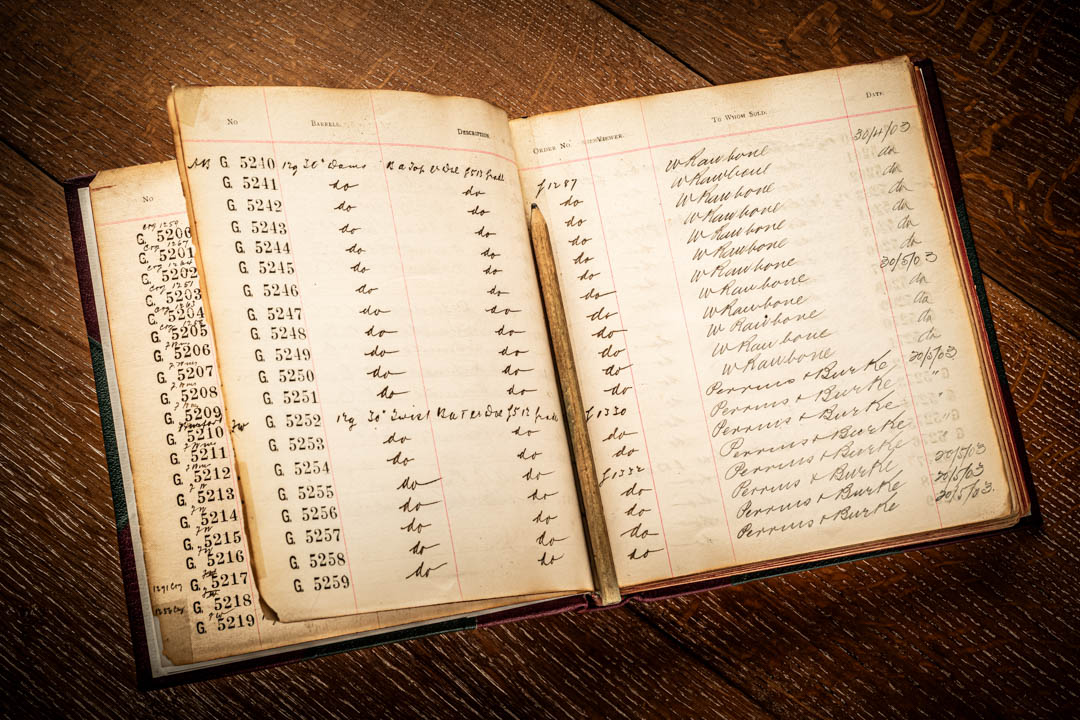 No
G. 5200
G. 5201
G. 5202
G. 5203
G. 5204
G. 5205
G. 5206
G. 5207
G. 5208
G. 5209
G. 5210
G. 5211
G. 5212
G. 5213
G. 5214
G. 5215
G. 5216
G. 5217
G. 5218
G. 5219
No BARRELL. DESCRIPTION ORDER No. VIEWER. TO WHOM SOLD. DATE.
G. 5240 12g 30" Dams f1287 W Rawbone 30/4/03
G. 5241 do do do W Rawbone do
G. 5242 do do do W Rawbone do
G. 5243 do do do W Rawbone do
G. 5244 do do do W Rawbone do
G. 5245 do do do W Rawbone do
G. 5246 do do do W Rawbone
G. 5247 do do do W Rawbone 30/5/03
G. 5248 do do do W Rawbone do
G. 5249 do do do W Rawbone do
G. 5250 do do do W Rawbone do
G. 5251 do do do W Rawbone do
G. 5252 12g 30" Twist f1330 Perrins & Burke 20/5/03
G. 5253 do do do Perrins & Burke "
G. 5254 do do do Perrins & Burke
G. 5255 do do f1332 Perrins & Burke "
G. 5256 do do do Perrins & Burke
G. 5257 do do do Perrins & Burke 20/5/03
G. 5258 do do do Perrins & Burke 20/5/03
G. 5259 do do do Perrins & Burke 20/5/03.